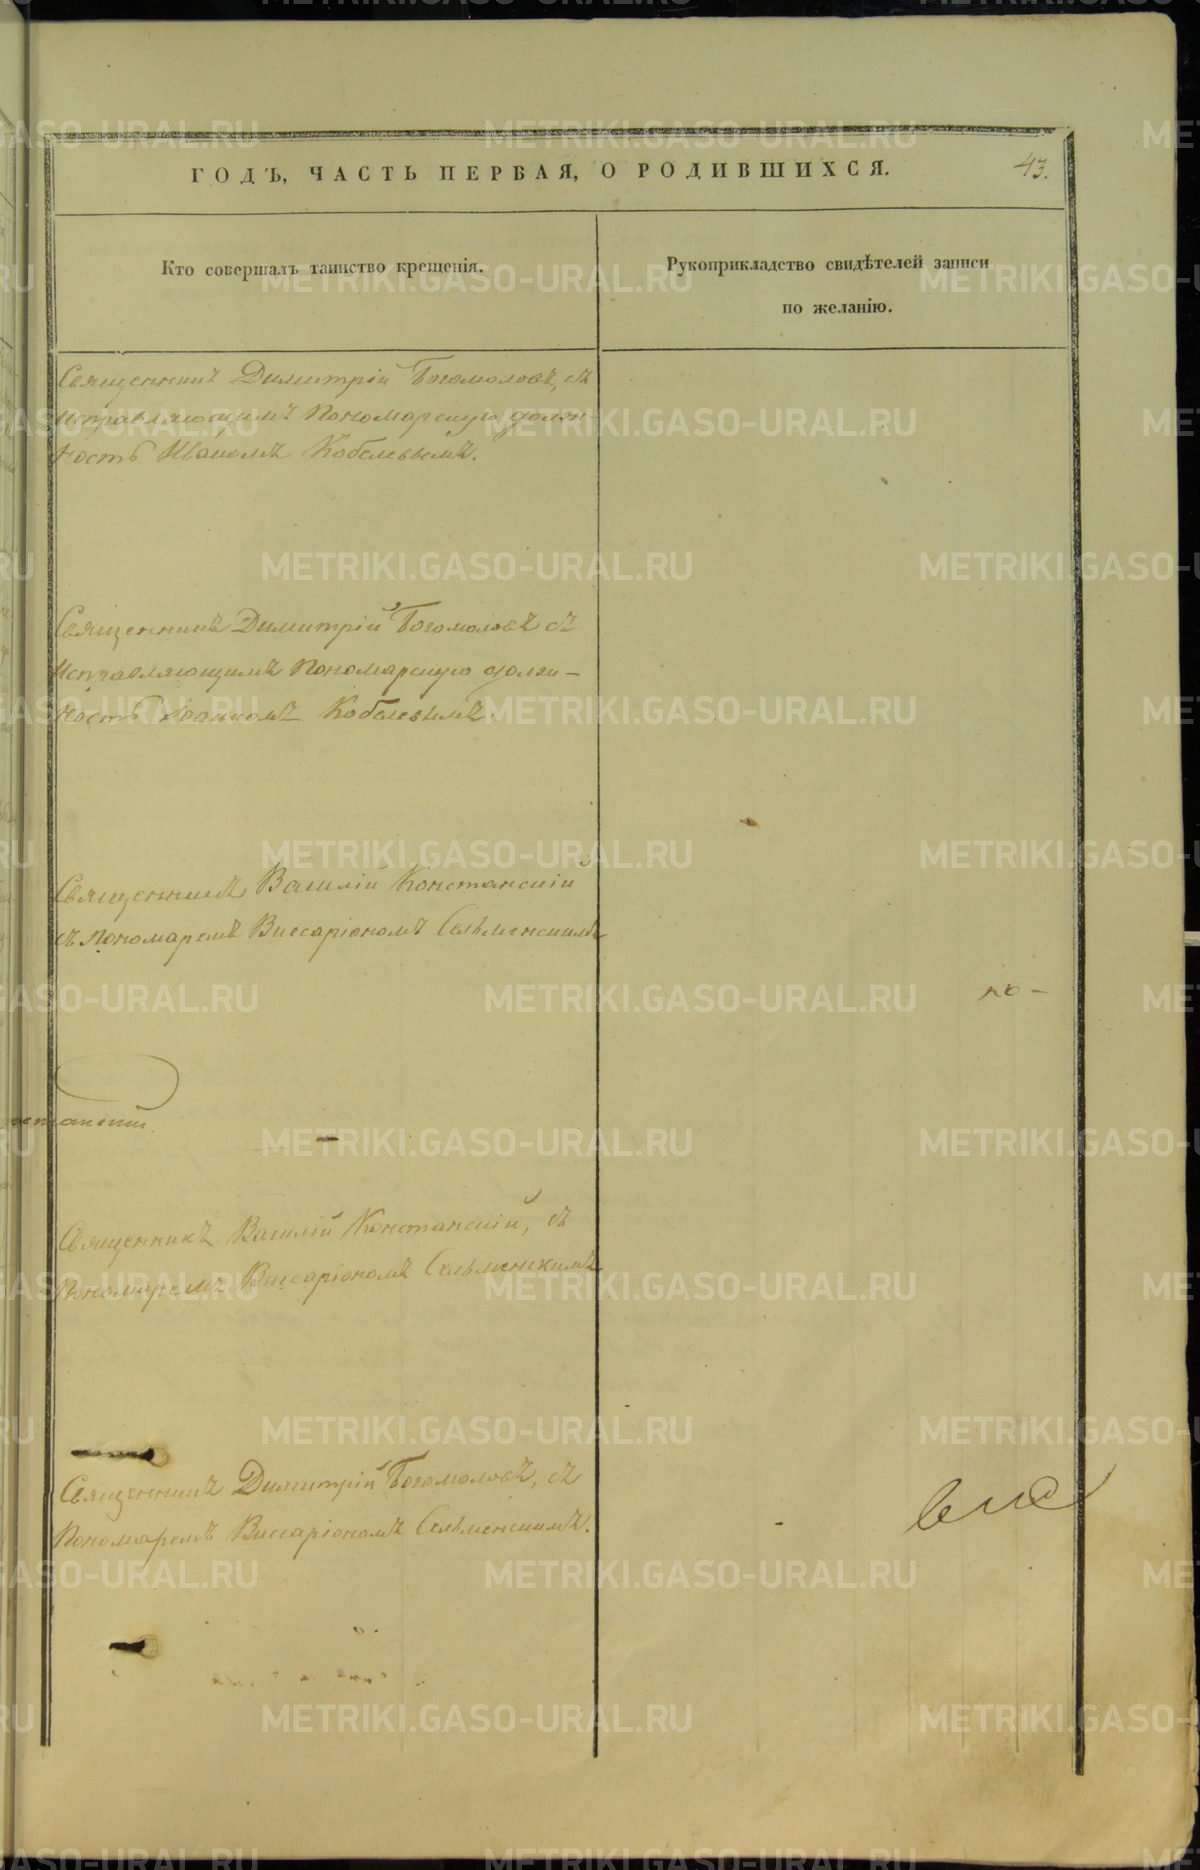 ГОДЪ, ЧАСТЬ ПЕРВАЯ, О РОДИВШИХСЯ.
43.
Кто совершалъ таинство крещенія.
Рукоприкладство свидѣтелей записи
по желанію.
Священникъ Димитрій Богомоловъ, съ
исправляющимъ Пономарскую долж-
ность Кобелевымъ.
Священникъ Димитрій Богомоловъ съ
исправляющимъ Пономарскую долж-
ность Іоанномъ Кобелевымъ.
Священникъ Василій Констанскій
съ пономаремъ Виссаріономъ Сельменскимъ
по-
Священникъ Василій Констанскій, съ
Пономаремъ Виссаріономъ Сельменскимъ
Священникъ Димитрій Богомоловъ, съ
Пономаремъ Виссаріономъ Сельменскимъ.
METRIKI.GASO-URAL.RU